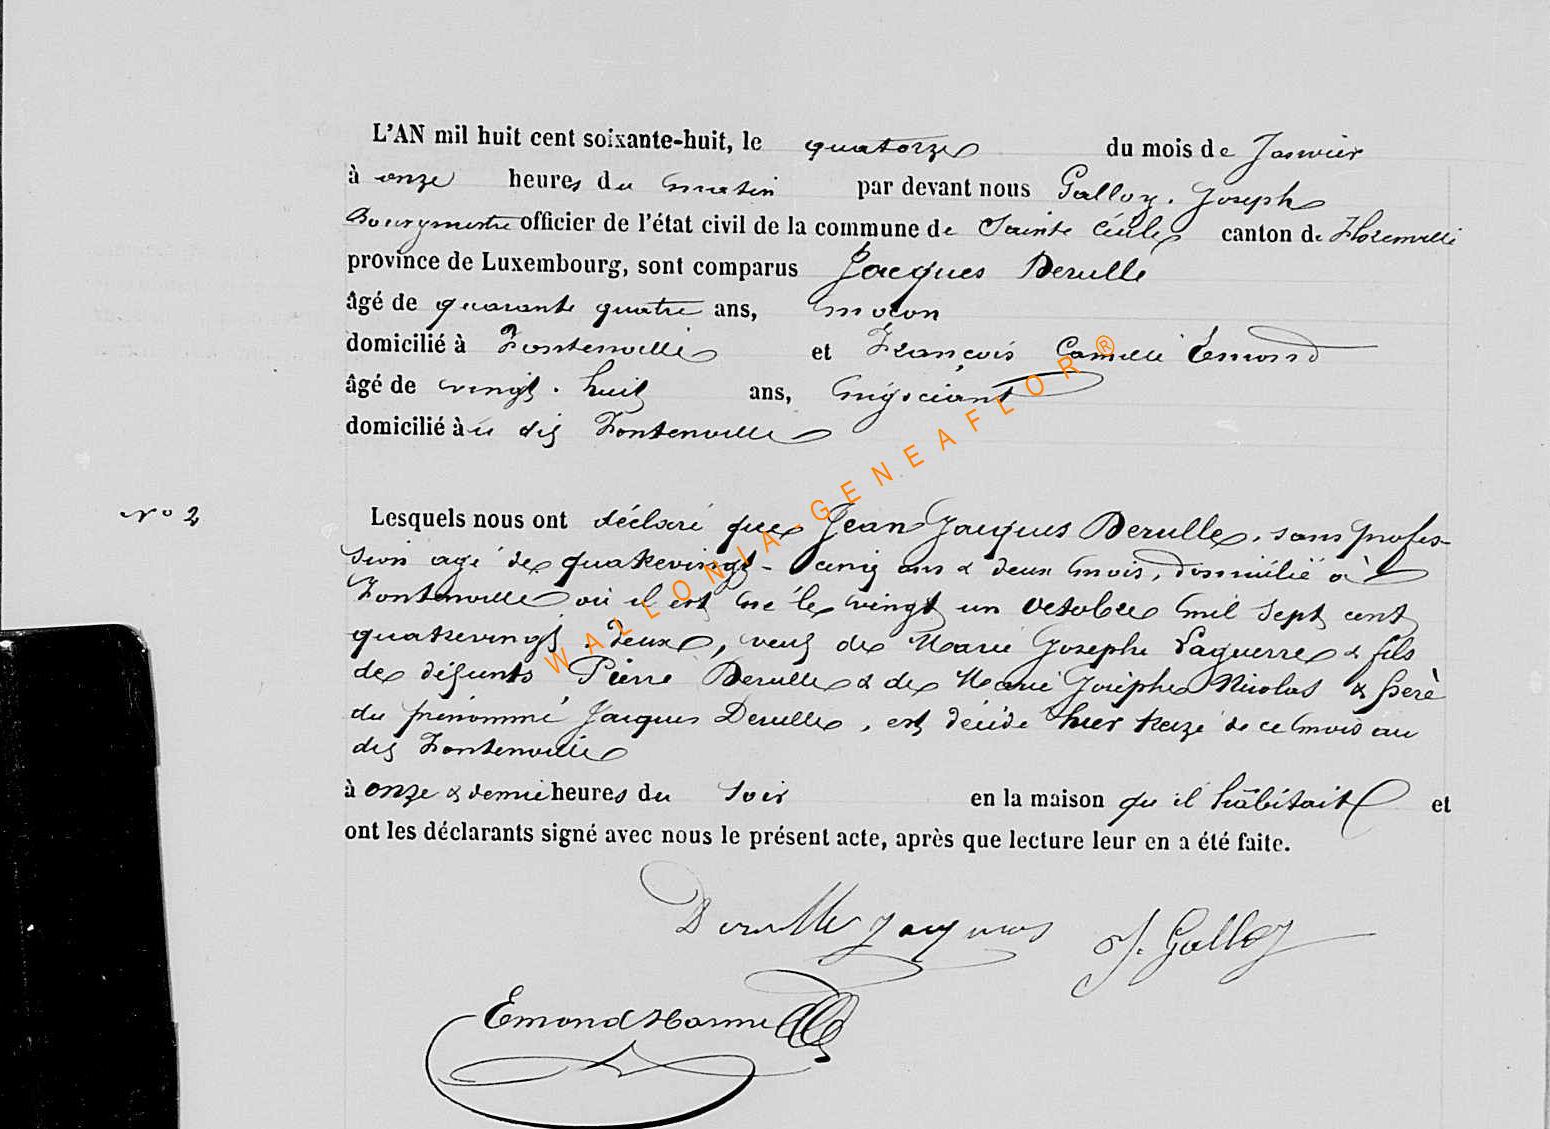 L'AN mil huit cent soixante-huit, le quatorze du mois de Janvier
à onze heures du matin par devant nous Galloy Joseph
Bourgmestre officier de l'état civil de la commune de Sainte Cécile canton de Florenville
province de Luxembourg, sont comparus Jacques Derulle
âgé de quarante quatre ans, maçon
domicilié à Fontenoille et François Camille Emond
âgé de vingt-huit ans, négociant
domicilié à u dit Fontenoille
N° 2
Lesquels nous ont déclaré que Jean Jacques Derulle, sans profes-
sion agé de quatrevingt-cinq ans & deux mois, domicilié à
Fontenoille où il est né le vingt un octobre mil sept cent
quatrevingt deux, veuf de Marie Josephe Laguerre & fils
de défunts Pierre Derulle & de Marie Josèphe Nicolas & père
du prénommé Jacques Derulle, est décédé hier treize de ce mois au
dit Fontenoille
à onze & demie heures du soir en la maison qu'il habitait et
ont les déclarants signé avec nous le présent acte, après que lecture leur en a été faite.
Derulle Jacques J. Galloy
Emond
WALLONIA-GENEAFLOR ®